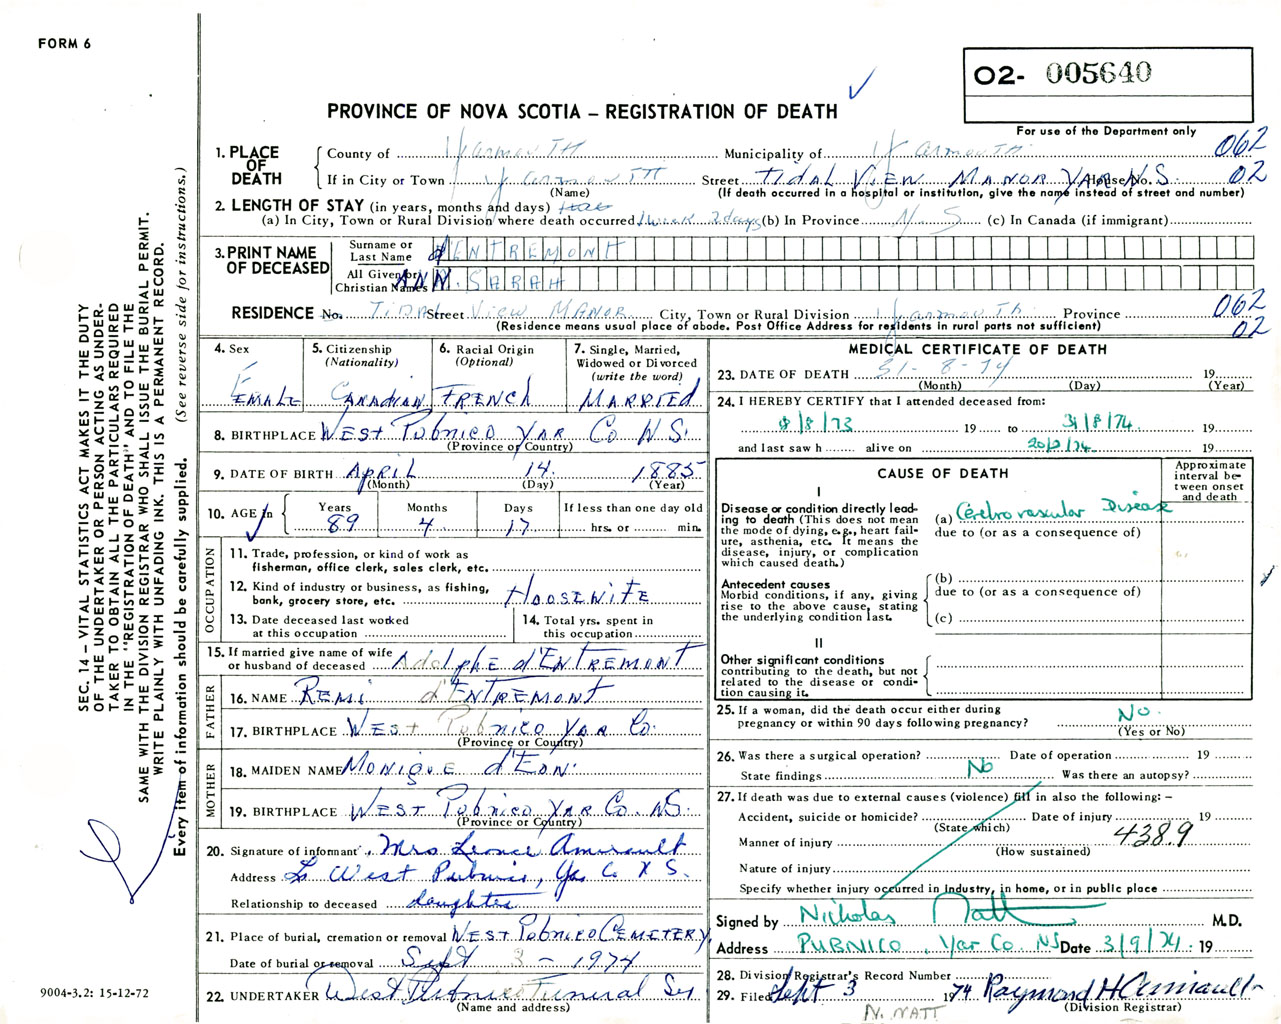 FORM 6
O2- 005640
PROVINCE OF NOVA SCOTIA – REGISTRATION OF DEATH
For use of the Department only
1. PLACE OF DEATH
County of Yarmouth Municipality of Yarmouth 062
If in City or Town Yarmouth Street Tidal View Manor Yar N.S. House No. 02
(Name) (If death occurred in a hospital or institution, give the name instead of street and number)
2. LENGTH OF STAY (in years, months and days)
(a) In City, Town or Rural Division where death occurred 1 week 2 days (b) In Province N S (c) In Canada (if immigrant)
3. PRINT NAME OF DECEASED
Surname or Last Name d'ENTREMONT
All Given or Christian Names ANN. SARAH
RESIDENCE No. Tidal Street View Manor City, Town or Rural Division Yarmouth Province 062
(Residence means usual place of abode. Post Office Address for residents in rural parts not sufficient) 02
4. Sex Female
5. Citizenship (Nationality) Canadian
6. Racial Origin (Optional) French
7. Single, Married, Widowed or Divorced (write the word) Married
8. BIRTHPLACE West Pubnico Yar Co N.S.
(Province or Country)
9. DATE OF BIRTH April 14. 1885
(Month) (Day) (Year)
10. AGE in Years 89 Months 4 Days 17 If less than one day old hrs. or min.
OCCUPATION
11. Trade, profession, or kind of work as fisherman, office clerk, sales clerk, etc.
12. Kind of industry or business, as fishing, bank, grocery store, etc. Hoosewife
13. Date deceased last worked at this occupation
14. Total yrs. spent in this occupation
15. If married give name of wife or husband of deceased Adolphe d'Entremont
FATHER
16. NAME Remi d'Entremont
17. BIRTHPLACE West Pubnico Yar Co.
(Province or Country)
MOTHER
18. MAIDEN NAME Monique d'Eon
19. BIRTHPLACE West Pubnico Yar Co. N.S.
(Province or Country)
20. Signature of informant Mrs Leonce Amirault
Address West Pubnico, Yar Co N S.
Relationship to deceased daughter
21. Place of burial, cremation or removal West Pubnico Cemetery
Date of burial or removal Sept 3 – 1974
22. UNDERTAKER West Pubnico Funeral Ser
(Name and address)
MEDICAL CERTIFICATE OF DEATH
23. DATE OF DEATH 31-8-74 19
(Month) (Day) (Year)
24. I HEREBY CERTIFY that I attended deceased from:
8/8/73 19 to 31/8/74 19
and last saw h alive on 19
CAUSE OF DEATH
Approximate interval between onset and death
I
Disease or condition directly leading to death (This does not mean the mode of dying, e.g., heart failure, asthenia, etc. It means the disease, injury, or complication which caused death.)
(a) Cerebrovascular Disease
due to (or as a consequence of)
Antecedent causes
Morbid conditions, if any, giving rise to the above cause, stating the underlying condition last.
(b)
due to (or as a consequence of)
(c)
II
Other significant conditions contributing to the death, but not related to the disease or condition causing it.
25. If a woman, did the death occur either during pregnancy or within 90 days following pregnancy? No.
(Yes or No)
26. Was there a surgical operation? No Date of operation 19
State findings Was there an autopsy?
27. If death was due to external causes (violence) fill in also the following: –
Accident, suicide or homicide? Date of injury 19
(State which)
Manner of injury 4389
(How sustained)
Nature of injury
Specify whether injury occurred in Industry, in home, or in public place
Signed by Nicholas Natt M.D.
Address Pubnico, Yar Co. NS Date 3/9/74. 19
28. Division Registrar's Record Number
29. Filed Sept 3 1974 Raymond H Amirault
(Division Registrar)
N. NATT
SEC. 14 – VITAL STATISTICS ACT MAKES IT THE DUTY
OF THE UNDERTAKER OR PERSON ACTING AS UNDER-
TAKER TO OBTAIN ALL THE PARTICULARS REQUIRED
IN THE "REGISTRATION OF DEATH" AND TO FILE THE
SAME WITH THE DIVISION REGISTRAR WHO SHALL ISSUE THE BURIAL PERMIT.
WRITE PLAINLY WITH UNFADING INK. THIS IS A PERMANENT RECORD.
Every item of information should be carefully supplied. (See reverse side for instructions.)
9004-3.2: 15-12-72